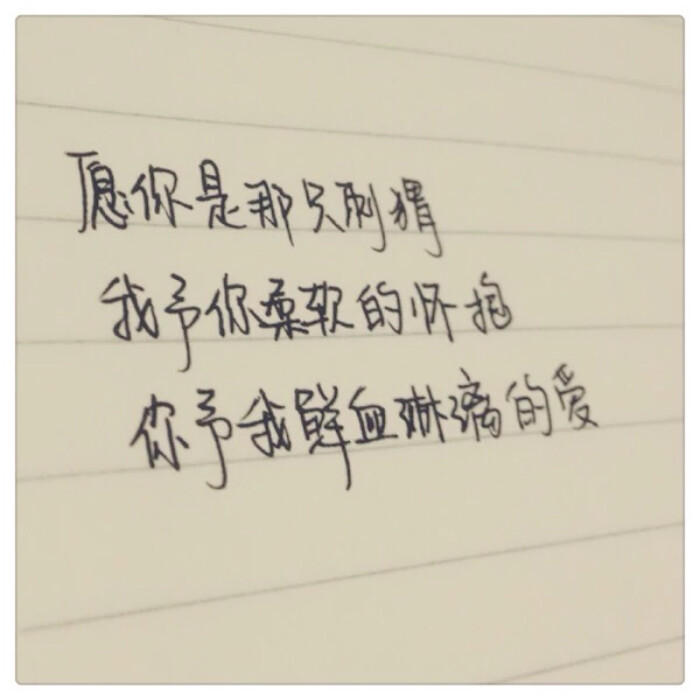 愿你是那只刺猬
我予你柔软的怀抱
你予我鲜血淋漓的爱